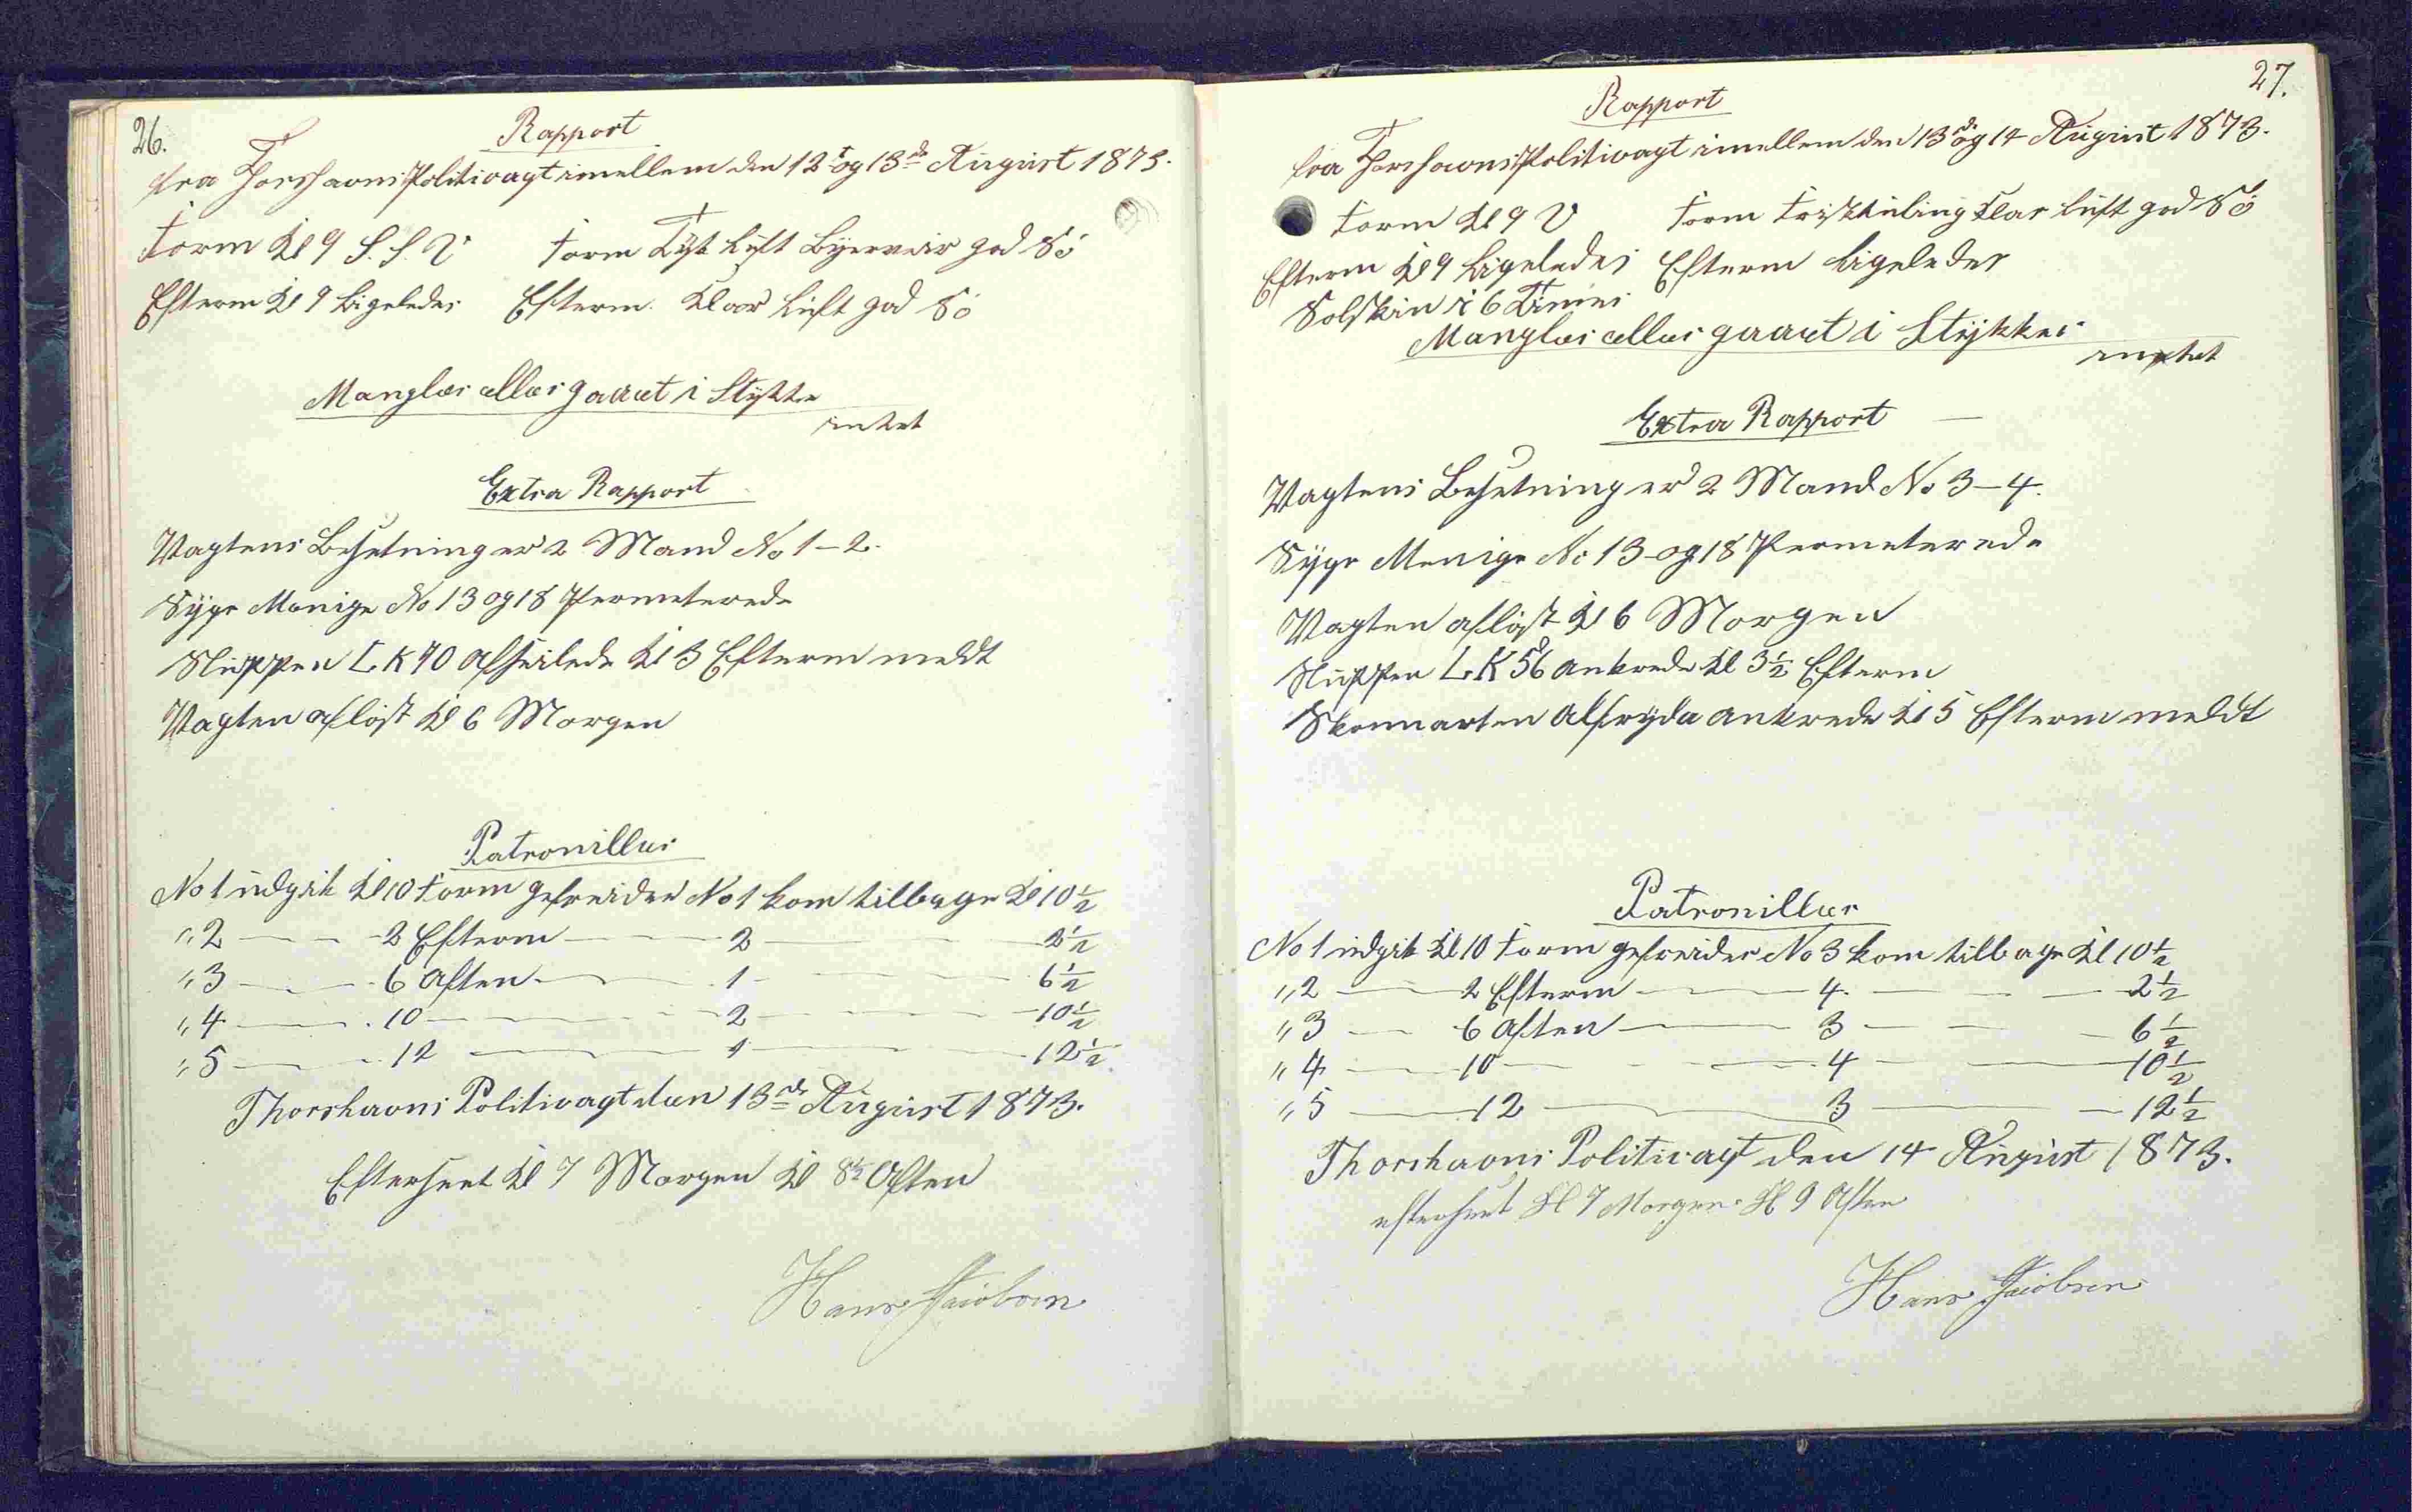 26.
Rapport
fra Thorshavns Politivagt imellem den 12t og 13de August 1873.
Form Kl 9 S. S. V Form Tyk Luft Byerveir god Sö
Efterm Kl 9 Ligeledes Efterm. Klar Luft god Sö
Mangler eller gaaet i Stykke
intet
Extra Rapport
Vagtens Besetning er 2 Mand No 1-2.
Syge Menige No 13 og 18 Permeterede
Sluppen LK 70 afseilede Kl 3 Efterm meldt
Vagten aflöst Kl 6 Morgen
Patrouiller
No 1 udgik Kl 10 Form gefreider No 1 kom tilbage Kl 10½
" 2 — - 2 Efterm — 2 — 2½
" 3 — - 6 Aften — 1 — 6½
" 4 — - 10 — 2 — 10½
" 5 — - 12 — 1 — 12½
Thorshavns Politivagt den 13de August 1873.
Efterseet Kl 7 Morgen Kl 8½ Aften
Hans Jacobsen
27.
Rapport
fra Thorshavns Politivagt imellem den 13de og 14 August 1873.
Form Kl 9 V Form Frisk Kuling Klar Luft god Sö
Efterm Kl 9 Ligeledes Efterm Ligeledes
Solskin i 6 Timer
Mangler eller gaaet i Stykker
intet
Extra Rapport
Vagtens Besetning er 2 Mand No 3-4.
Syge Menige No 13 og 18 Permeterede
Vagten aflöst Kl 6 Morgen
Sluppen LK 56 ankrede Kl 3½ Efterm
Skonnarten Alfryda ankrede Kl 5 Efterm meldt
Patrouiller
No 1 udgik Kl 10 Form gefreider No 3 kom tilbage Kl 10½
" 2 — 2 Efterm — 4. — 2½
" 3 — 6 Aften — 3 — 6½
" 4 — 10 — 4 — 10½
" 5 — 12 — 3 — 12½
Thorshavns Politivagt den 14 August 1873.
efterseet Kl 7 Morgen Kl 9 Aften
Hans Jacobsen